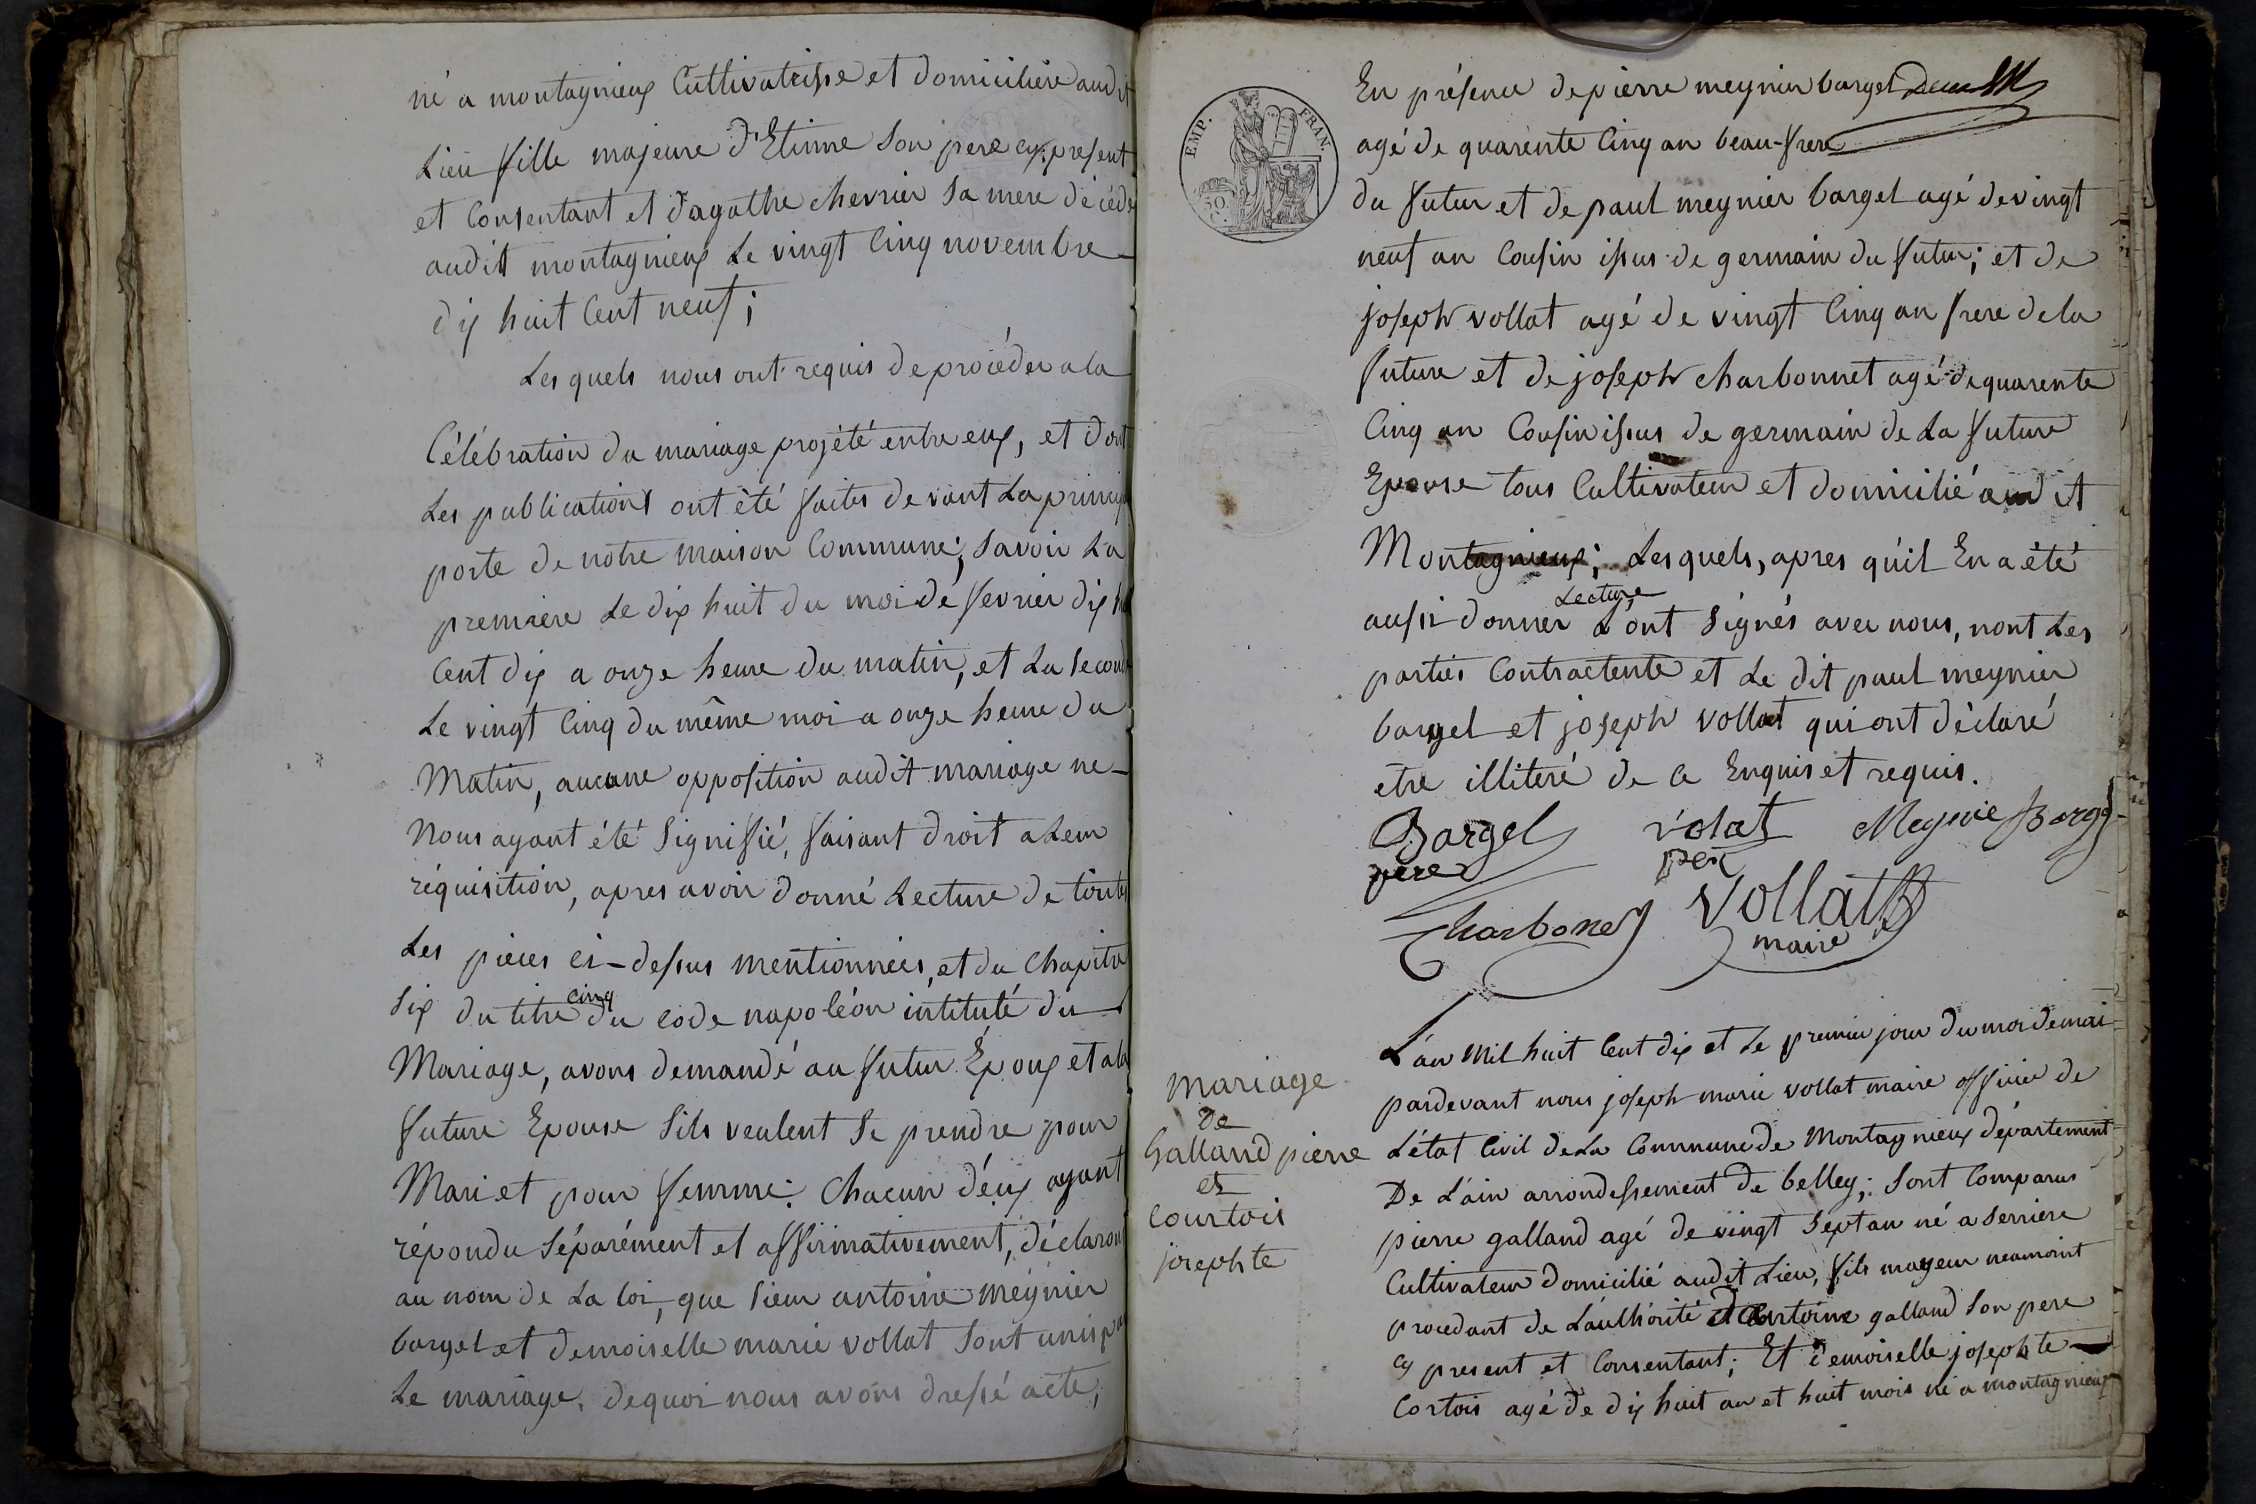 né a montagnieux Cultivatrisse et domicilière audit
Lieu fille majeure d'Etienne Son pere cy present
et Consentant et d'agathe chevrier Sa mere décédé
audit montagnieux Le vingt Cinq novembre
dix huit Cent neuf;
Les quels nous ont requis de procéder a la
Célébration du mariage projété entre eux, et dont
Les publications ont été faites devant La
porte de notre maison Commune; Savoir La
premiere Le dix huit du moi de fevrier dix
Cent dix a onze heure du matin, et La
Le vingt Cinq du même moi a onze heure du
Matin, aucune opposition audit mariage ne
Nous ayant été Signifié, faisant droit a Leur
réquisition, apres avoir donné Lecture de toutes
Les pieces ci-dessus mentionnées, et du Chapitre
Six du titre cinq du code napoléon intitulé du
Mariage, avons demandé au futur Epoux et a la
future Epouse Sils veulent Se prendre pour
Mari et pour femme: Chacun d'eux ayant
répondu Séparément et affirmativement, déclarons
au nom de La loi, que Sieur antoine meynier
bargel et demoiselle marie vollat Sont unis par
Le mariage. dequoi nous avons dressé acte;
EMP. FRAN.
50
C.
En présence de pierre meynier bargel
agé de quarente Cinq an beau-frere
du futur et de paul meynier bargel agé de vingt
neuf an Cousin issus de germain du futur; et de
joseph vollat agé de vingt Cinq an frere de la
future et de joseph charbonnet agé de quarente
Cinq an Cousin issus de germain de La future
Epouse tous Cultivateur et domicilié audit
Montagnieux; Lesquels, apres qu'il En a été
aussi donner Lecture, ont Signés avec nous, nont Les
parties Contractente et Le dit paul meynier
bargel et joseph vollat qui ont déclaré
etre illiteré de ce Enquis et requis.
Bargel volat Meynie Bargel
pere per
Charbonet Vollat
maire
Mariage
de
Galland pierre
et
Courtois
josephte
L'an Mil huit Cent dix et Le premier jour du moi de mai
pardevant nous joseph marie vollat maire officier de
L'état Civil de La Commune de Montagnieux département
De L'ain arrondessement de belley; Sont Comparus
pierre galland agé de vingt Sept an né a Serriere
Cultivateur domicilié audit Lieu, fils mayeur neamoint
procedant de L'aulhorité d'antoine galland Son pere
cy present et Consentant; Et demoiselle josephte
Cortois agé de dix huit an et huit mois né a montagnieux